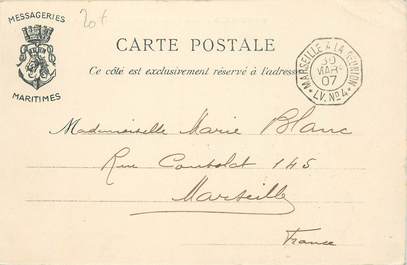 20f
MESSAGERIES
MARITIMES
CARTE POSTALE
Ce côté est exclusivement réservé à l'adresse
MARSEILLE A LA REUNION
30
MARS
07
L.V. No 4
Mademoiselle Marie Blanc
Rue 145
Marseille
France